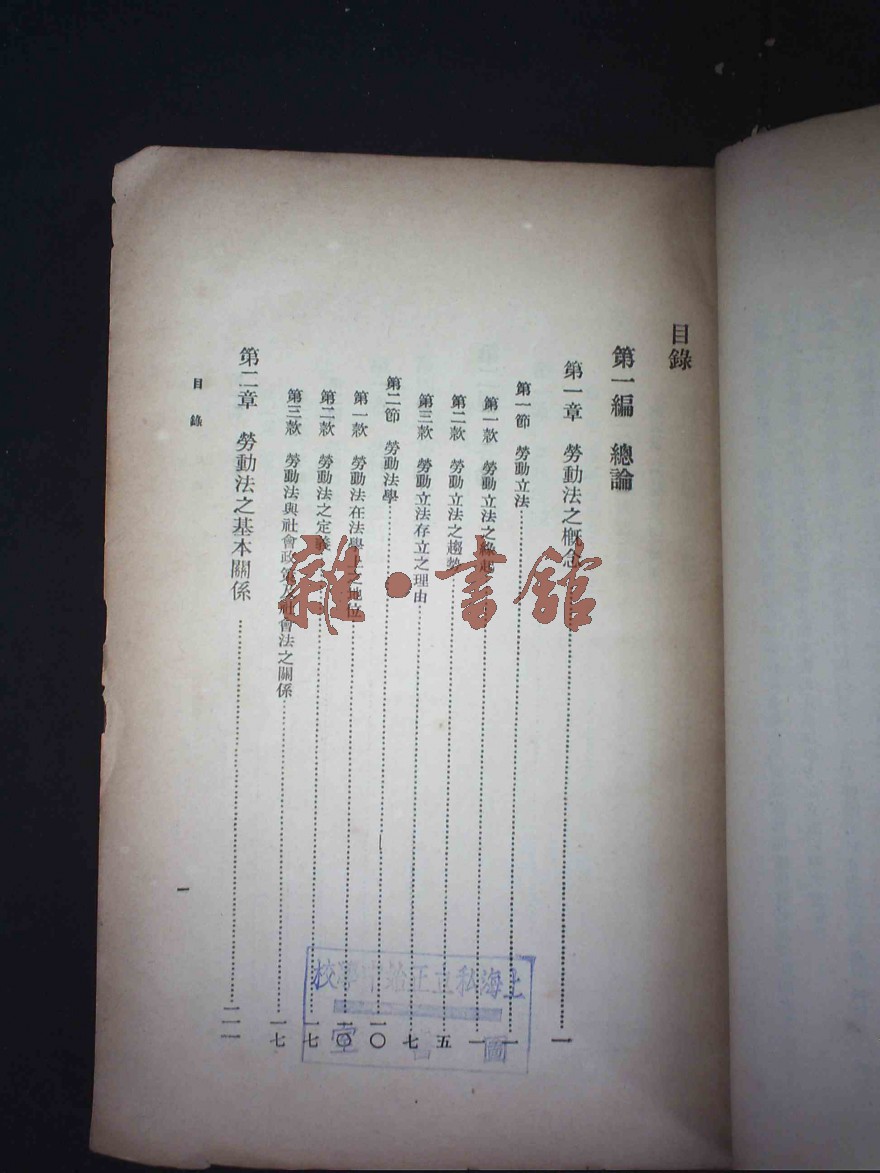 目錄
第一編　總論
第一章　勞動法之概念…………一
第一節　勞動立法…………一
第一款　勞動立法之緣起…………一
第二款　勞動立法之趨勢…………五
第三款　勞動立法存立之理由…………七
第二節　勞動法學…………一〇
第一款　勞動法在法學上之地位…………一〇
第二款　勞動法之定義…………一七
第三款　勞動法與社會政策及社會法之關係…………一七
第二章　勞動法之基本關係…………二一
目錄
一
雜·書館
上海私立正始中學校
圖書室